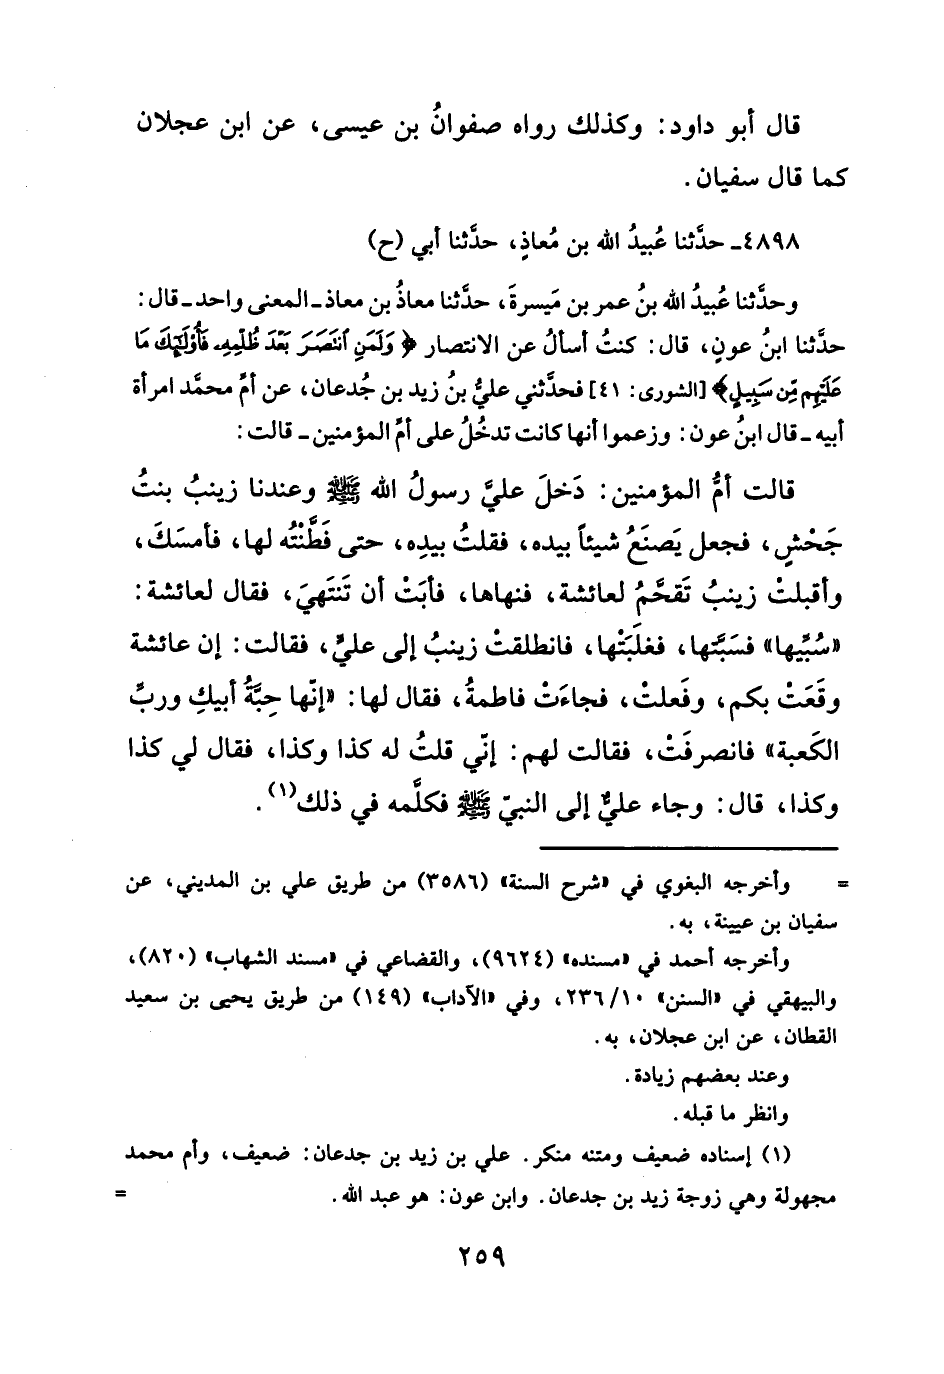 قال أبو داود: وكذلك رواه صفوانُ بن عيسى، عن ابن عجلان
كما قال سفيان.
٤٨٩٨ـ حدَّثنا عُبيدُ الله بن مُعاذٍ، حدَّثنا أبي (ح)
وحدَّثنا عُبيدُ الله بنُ عمر بن مَيسرةَ، حدَّثنا معاذُ بن معاذ ـ المعنى واحد ـ قال:
حدَّثنا ابنُ عونٍ، قال: كنتُ أسألُ عن الانتصار ﴿وَلَمَنِ ٱنتَصَرَ بَعْدَ ظُلْمِهِۦ فَأُو۟لَٰٓئِكَ مَا
عَلَيْهِم مِّن سَبِيلٍ﴾ [الشورى: ٤١] فحدَّثني عليُّ بنُ زيد بن جُدعان، عن أمِّ محمَّد امرأة
أبيه ـ قال ابنُ عون: وزعموا أنها كانت تدخُلُ على أمِّ المؤمنين ـ قالت:
قالت أمُّ المؤمنين: دَخلَ عليَّ رسولُ الله ﷺ وعندنا زينبُ بنتُ
جَحْشٍ، فجعل يَصنَعُ شيئاً بيده، فقلتُ بيدِه، حتى فَطَّنْتُه لها، فأمسَكَ،
وأقبلتْ زينبُ تَقحَّمُ لعائشة، فنهاها، فأبَتْ أن تَنتَهيَ، فقال لعائشة:
«سُبِّيها» فسَبَّتها، فغلَبَتْها، فانطلقتْ زينبُ إلى عليٍّ، فقالت: إن عائشة
وقَعَتْ بكم، وفَعلتْ، فجاءَتْ فاطمةُ، فقال لها: «إنّها حِبَّةُ أبيكِ وربِّ
الكَعبة» فانصرفَتْ، فقالت لهم: إنّي قلتُ له كذا وكذا، فقال لي كذا
وكذا، قال: وجاء عليٌّ إلى النبيّ ﷺ فكلَّمه في ذلك(١).
= وأخرجه البغوي في «شرح السنة» (٣٥٨٦) من طريق علي بن المديني، عن
سفيان بن عيينة، به.
وأخرجه أحمد في «مسنده» (٩٦٢٤)، والقضاعي في «مسند الشهاب» (٨٢٠)،
والبيهقي في «السنن» ١٠/٢٣٦، وفي «الآداب» (١٤٩) من طريق يحيى بن سعيد
القطان، عن ابن عجلان، به.
وعند بعضهم زيادة.
وانظر ما قبله.
(١) إسناده ضعيف ومتنه منكر. علي بن زيد بن جدعان: ضعيف، وأم محمد
مجهولة وهي زوجة زيد بن جدعان. وابن عون: هو عبد الله. =
٢٥٩